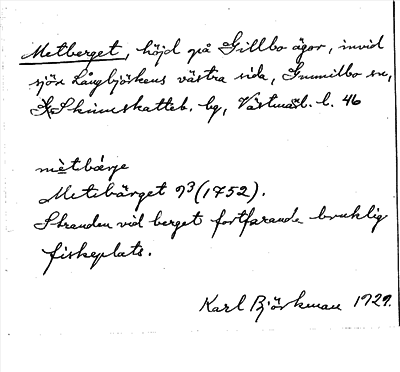 Metberget, höjd på Gillbo ägor, invid
sjön Långbjörkens västra sida, Gunnilbo sn,
Skinnskatteb. bg, Västmal. l. 46
mètbærje
Metebärget 93 (1752).
Stranden vid berget fortfarande bruklig
fiskeplats.
Karl Björkman 1929.